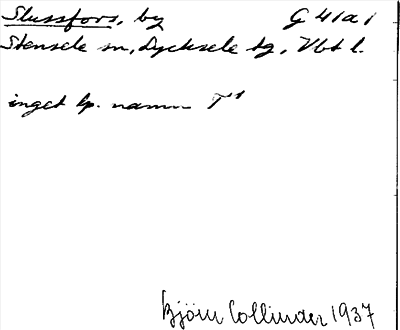 Slussfors, by G 41a1
Stensele sn, Lycksele tg, Vbt l.
inget lp. namn T¹
Björn Collinder 1937